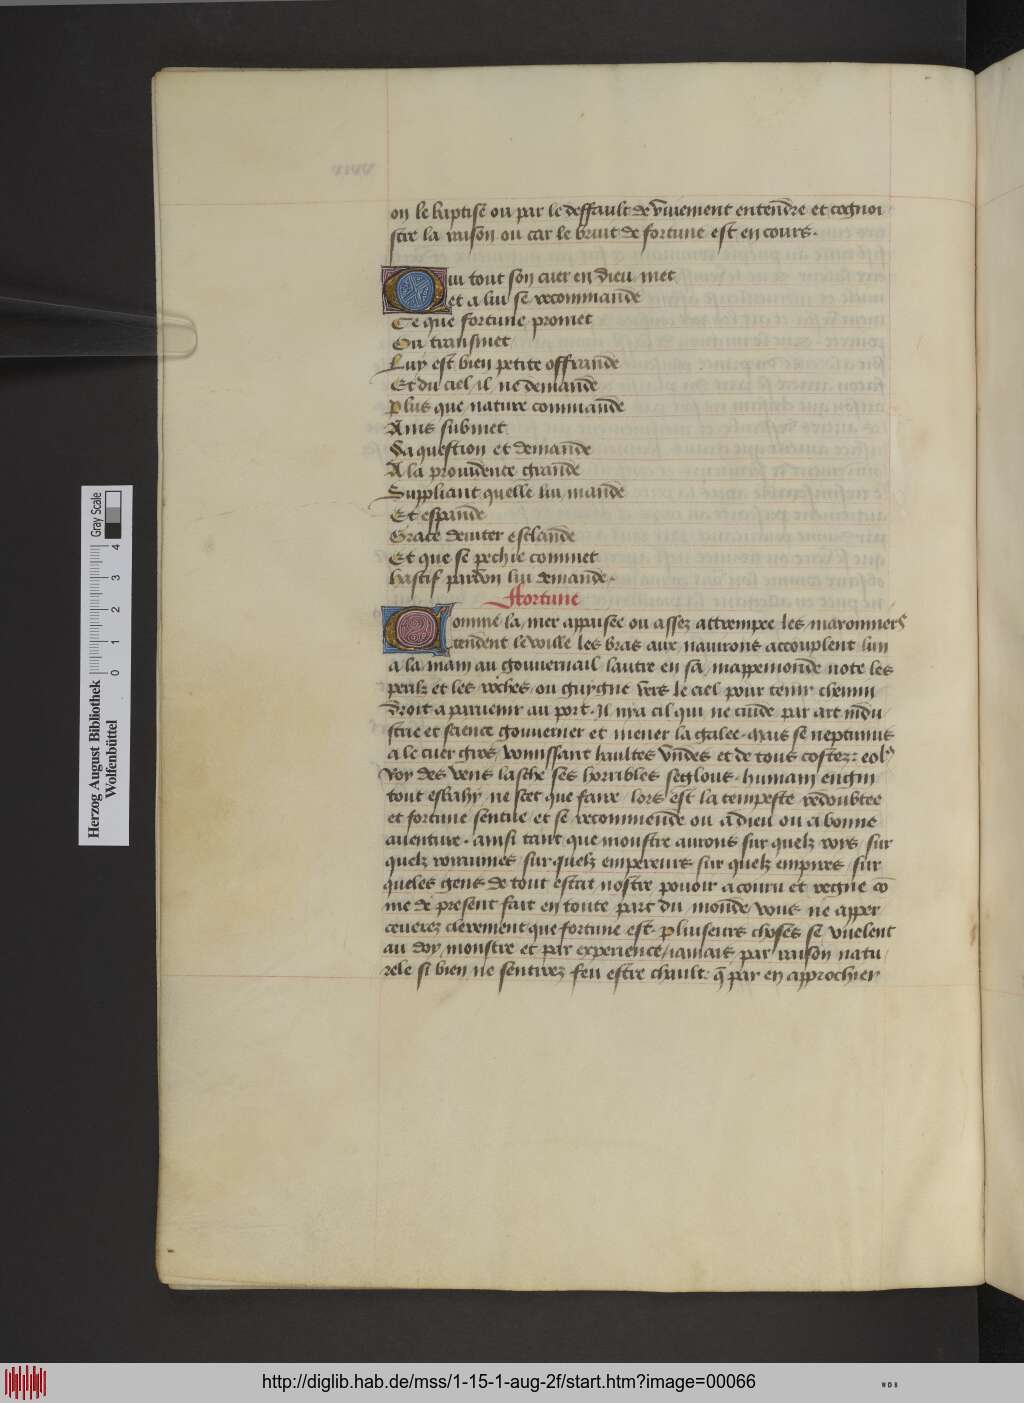 on le baptise ou par le deffault de vivement entendre et cognoi
stre la raison ou car le bruit de fortune est en cours.
Qui tout son cuer en dieu met
et a lui se recommande
Ce que fortune promet
Ou transmet
Luy est bien petite offrande
Et du ciel il ne demande
Plus que nature commande
Ains submet
Sa question et demande
A la providence grande
Suppliant quelle lui mande
Et espande
Grace deviter esclande
Et que se pechie commet
hastif pardon lui demande.
Ffortune
Comme la mer apaisee ou assez attrempee les maronniers
tendent le voille les bras aux navirons accouplent lun
a la main au gouvernail lautre en sa mappemonde note les
perilz et les roches ou guygne vers le ciel pour tenir chemin
droit a parvenir au port. Il nya cil qui ne cuide par art indu
strie et science gouverner et mener la galee. Mais se neptunus
a le cuer gros vomissant haultes undes et de tous costez: eol9
roy des vens lasche ses horribles seglous. humain engin
tout esbahy ne scet que faire lors est la tempeste redoubtee
et fortune sentue et se recommende ou a dieu ou a bonne
aventure. ainsi tant que monstre aurons sur quelz roys sur
quelz royaumes sur quelz empereurs sur quelz empires sur
queles gens de tout estat nostre povoir a couru et regne cō
me de present fait en toute part du monde vous ne apper
cevrez clerement que fortune est. Pluiseurs choses se vuelent
au doy monstre et par experience jamais par raison natu
rele si bien ne sentirez feu estre chault: q̄ par en approchier
Herzog August Bibliothek
Wolfenbüttel
0 1 2 3 4
Gray Scale
http://diglib.hab.de/mss/1-15-1-aug-2f/start.htm?image=00066